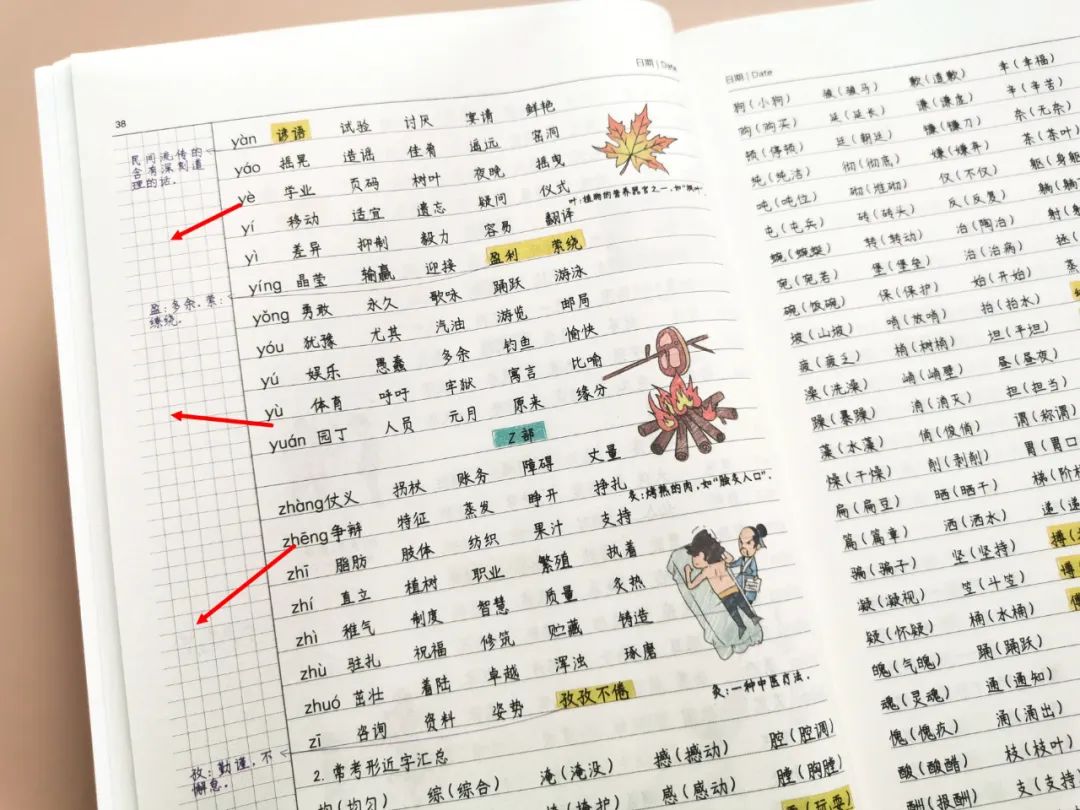 38
日期 | Date
民间流传的
含有深刻道
理的话.
yàn 谚语 试验 讨厌 宴请 鲜艳
yáo 摇晃 造谣 佳肴 遥远 窑洞
yè 学业 页码 树叶 夜晚 摇曳
叶:植物的营养器官之一,如"枫叶".
yí 移动 适宜 遗忘 疑问 仪式
yì 差异 抑制 毅力 容易 翻译
yíng 晶莹 输赢 迎接 盈利 萦绕
盈:多余.萦:
缭绕.
yǒng 勇敢 永久 歌咏 踊跃 游泳
yóu 犹豫 尤其 汽油 游览 邮局
yú 娱乐 愚蠢 多余 钓鱼 愉快
yù 体育 呼吁 牢狱 寓言 比喻
yuán 园丁 人员 元月 原来 缘分
Z部
zhàng 仗义 拐杖 账务 障碍 丈量
炙:烤熟的肉,如"脍炙人口".
zhēng 争辩 特征 蒸发 睁开 挣扎
zhī 脂肪 肢体 纺织 果汁 支持
zhí 直立 植树 职业 繁殖 执着
zhì 稚气 制度 智慧 质量 炙热
zhù 驻扎 祝福 修筑 贮藏 铸造
zhuó 茁壮 着陆 卓越 浑浊 琢磨
灸:一种中医疗法.
zī 咨询 资料 姿势 孜孜不倦
孜:勤谨,不
懈怠.
2.常考形近字汇总
均(均匀) 综(综合) 淹(淹没) 撼(撼动) 腔(腔调)
感(感动) 膛(胸膛)
日期 | Date
狗(小狗) 骏(骏马) 歉(道歉) 幸(幸福)
购(购买) 延(延长) 谦(谦虚) 辛(辛苦)
顿(停顿) 廷(朝廷) 镰(镰刀) 杂(无杂)
纯(纯洁) 彻(彻底) 嫌(嫌弃) 茶(茶叶)
吨(吨位) 砌(堆砌) 仅(不仅) 躯(身躯
屯(屯兵) 砖(砖头) 反(反复) 躺(躺
蜿(蜿蜒) 转(转动) 冶(陶冶) 射(射
宛(宛若) 堡(堡垒) 治(治病)
碗(饭碗) 保(保护) 始(开始) 蒸
坡(山坡) 哨(放哨) 抬(抬水)
疲(疲乏) 梢(树梢) 坦(平坦)
澡(洗澡) 峭(峭壁) 昼(昼夜)
躁(暴躁) 消(消灭) 担(担当)
藻(水藻) 俏(俊俏) 谓(称谓)
燥(干燥) 削(剥削) 胃(胃口)
扁(扁豆) 晒(晒干) 梯(阶梯
篇(篇章) 洒(洒水) 递(递
骗(骗子) 坚(坚持) 搏(
凝(凝视) 竺(斗笠)
疑(怀疑) 桶(水桶)
魄(气魄) 踊(踊跃)
魂(灵魂) 通(通知)
愧(愧疚) 涌(涌出)
酸(酸醋) 枝(枝叶)
酬(报酬) 支(支持